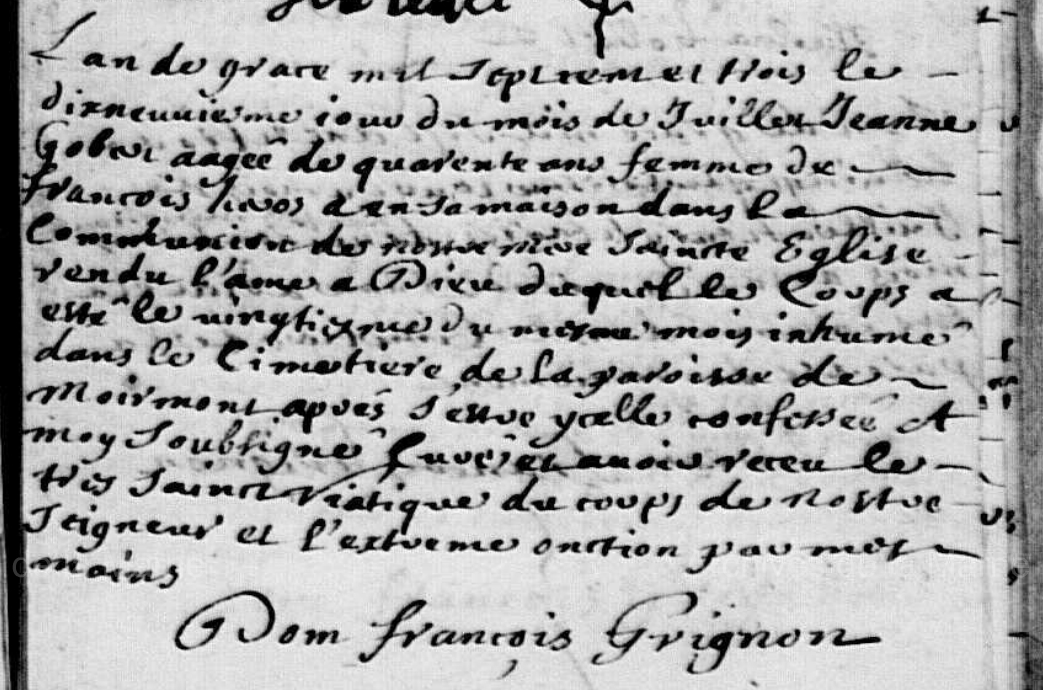 Lan de grace mil sept cent et trois le
dixneuvieme iour du mois de Juillet Jeanne
Gobert aagée de quarente ans femme de
francois a en sa maison dans La
Communion de nostre mere Saincte Eglise
rendu l'ame a Dieu duquel le Corps a
esté le vingtiesme du mesme mois inhumé
dans le Cimetiere de la paroisse de
Moirmont aprés s'estre ycelle confessée A
moy Soubsigné Curé et avoir receu le
tres Sainct Viatique du corps de Nostre
Seigneur et l'extreme onction par mes
mains
Dom françois Grignon